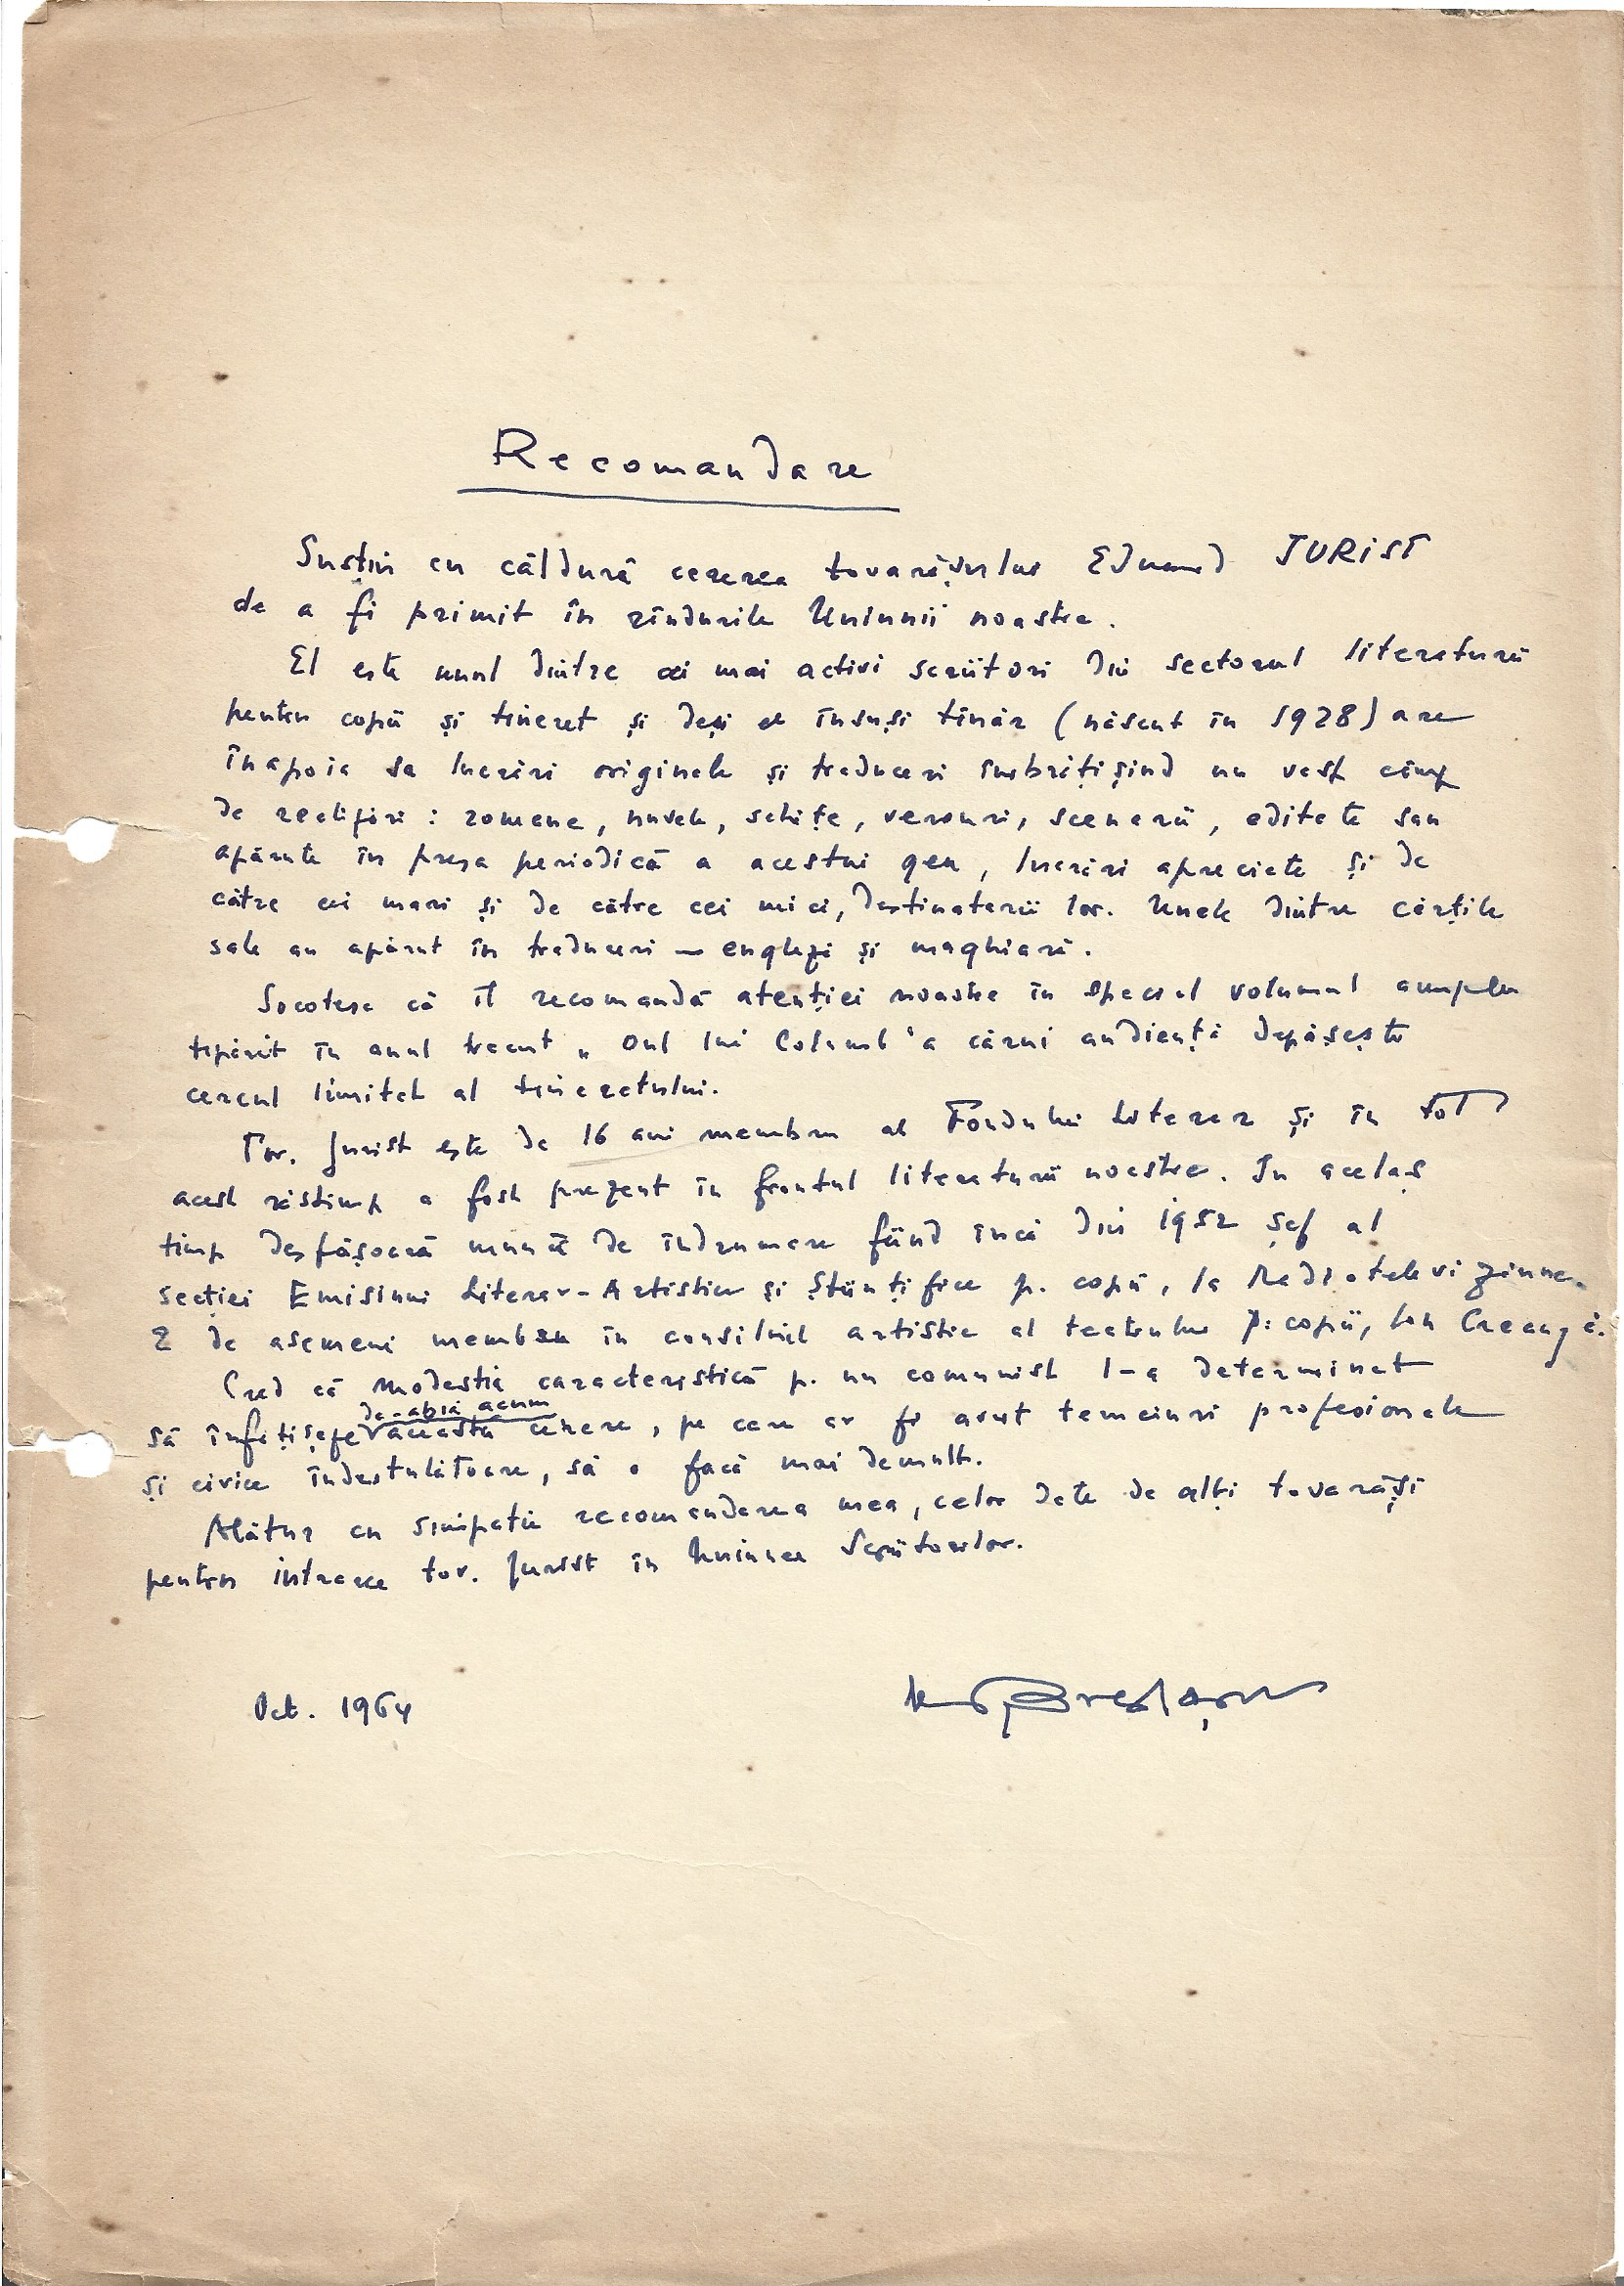 Recomandare
Susțin cu căldură cererea tovarășului Eduard JURIST
de a fi primit în rîndurile Uniunii noastre.
El este unul dintre cei mai activi scriitori din sectorul literaturii
pentru copii și tineret și deși el însuși tînăr (născut în 1928) are
înapoia sa lucrări originale și traduceri îmbrățișînd un vast cîmp
de realizări: romane, nuvele, schițe, versuri, scenarii, editate sau
apărute în presa periodică a acestui gen, lucrări apreciate și de
către cei mari și de către cei mici, destinatarii lor. Unele dintre cărțile
sale au apărut în traduceri — engleză și maghiară.
Socotesc că îl recomandă atenției noastre în special volumul amplu
tipărit în anul trecut „Oul lui Columb" a cărui audiență depășește
cercul limitat al tineretului.
Tov. Jurist este de 16 ani membru al Fondului Literar și în tot
acest răstimp a fost prezent în frontul literaturii noastre. In acelaș
timp desfășoară muncă de îndrumare fiind încă din 1952 șef al
secției Emisiuni Literar-Artistice și Științifice p. copii, la Radioteleviziune.
E de asemeni membru în consiliul artistic al teatrului p. copii, Ion Creangă.
Cred că modestia caracteristică p. un comunist l-a determinat
să înfățișeze de-abia acum această cerere, pe care ar fi avut temeiuri profesionale
și civice îndestulătoare, să o facă mai demult.
Alătur cu simpatie recomandarea mea, celor date de alți tovarăși
pentru intrarea tov. Jurist în Uniunea Scriitorilor.
Oct. 1964